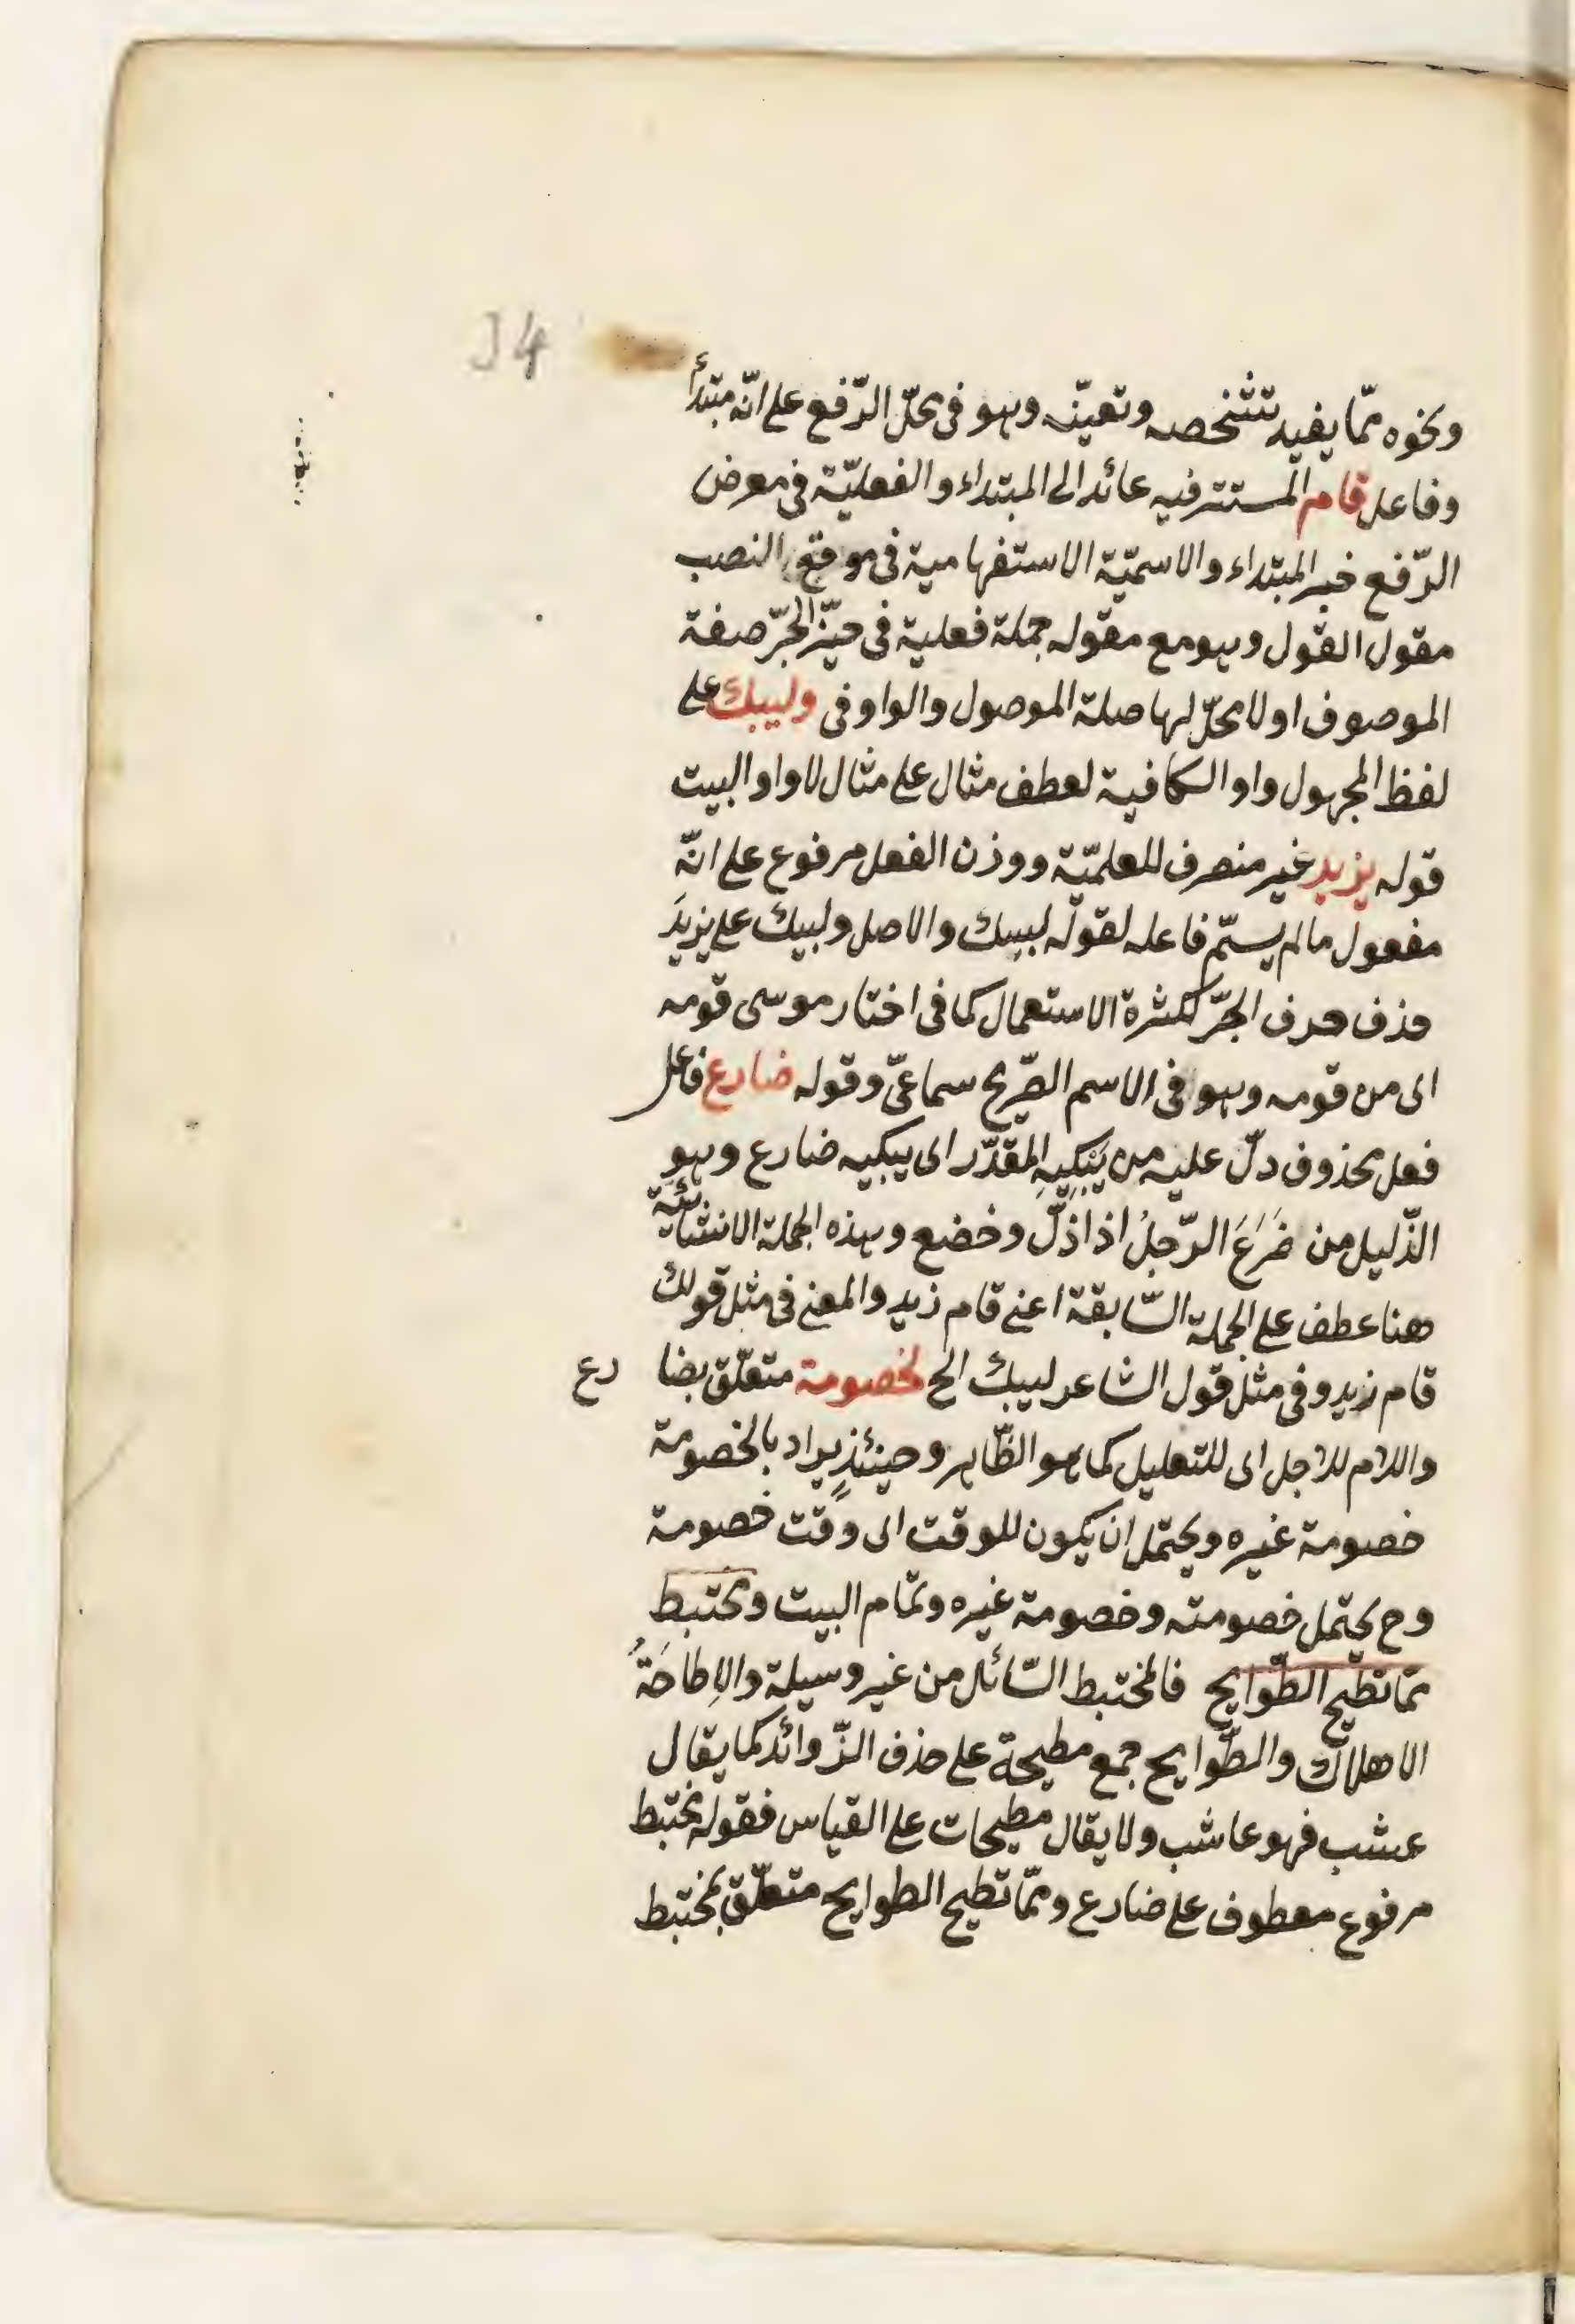 34
ونحوه ممّا يفيد تشخصه وتعيّنه وهو فى محلّ الرّفع على انّه مبتدأ
وفاعل قام المستتر فيه عائد الى المبتداء والفعليّة فى معرض
الرّفع خبر المبتداء والاسميّة الاستفهامية فى موقع النصب
مقول القول وهو مع مقوله جملة فعلية فى حيّز الجرّ صفة
الموصوف او لا محلّ لها صلة الموصول والواو فى وليبك على
لفظ المجهول واو الكافية لعطف مثال على مثال لا واو البيت
قوله يزيد غير منصرف للعلميّة ووزن الفعل مرفوع على انّه
مفعول ما لم يسمّ فاعله لقوله ليبك والاصل وليبك على يزيدَ
حذف حرف الجرّ لكثرة الاستعمال كما فى اختار موسى قومه
اى من قومه وهو فى الاسم الصّريح سماعىّ وقوله ضارع فاعل
فعل محذوف دلّ عليه من يَبْكِيهِ المقدّر اى يبكيه ضارع وهو
الذّليل من ضَرَعَ الرّجلُ اذا ذلّ وخضع وهذه الجملة الانشائيّة
هنا عطف على الجملة السّابقة اعنى قام زيد والمعنى فى مثل قولك
قام زيد وفى مثل قول الشاعر ليبك الخ لخصومة متعلّق بضا رع
واللام للاجل اى للتعليل كما هو الظّاهر وحينئذٍ يراد بالخصومة
خصومة غيره ويحتمل ان يكون للوقت اى وقت خصومة
وح يحتمل خصومته وخصومة غيره وتمام البيت ومختبط
ممّا تطيح الطّوايح فالمختبط السّائل من غير وسيلة والاِطاحَةُ
الاهلاك والطّوايح جمع مطيحة على حذف الزّوائد كما يقال
عشب فهو عاشب ولا يقال مطيحات على القياس فقوله مختبط
مرفوع معطوف على ضارع وممّا تطيح الطوايح متعلّق بمختبط